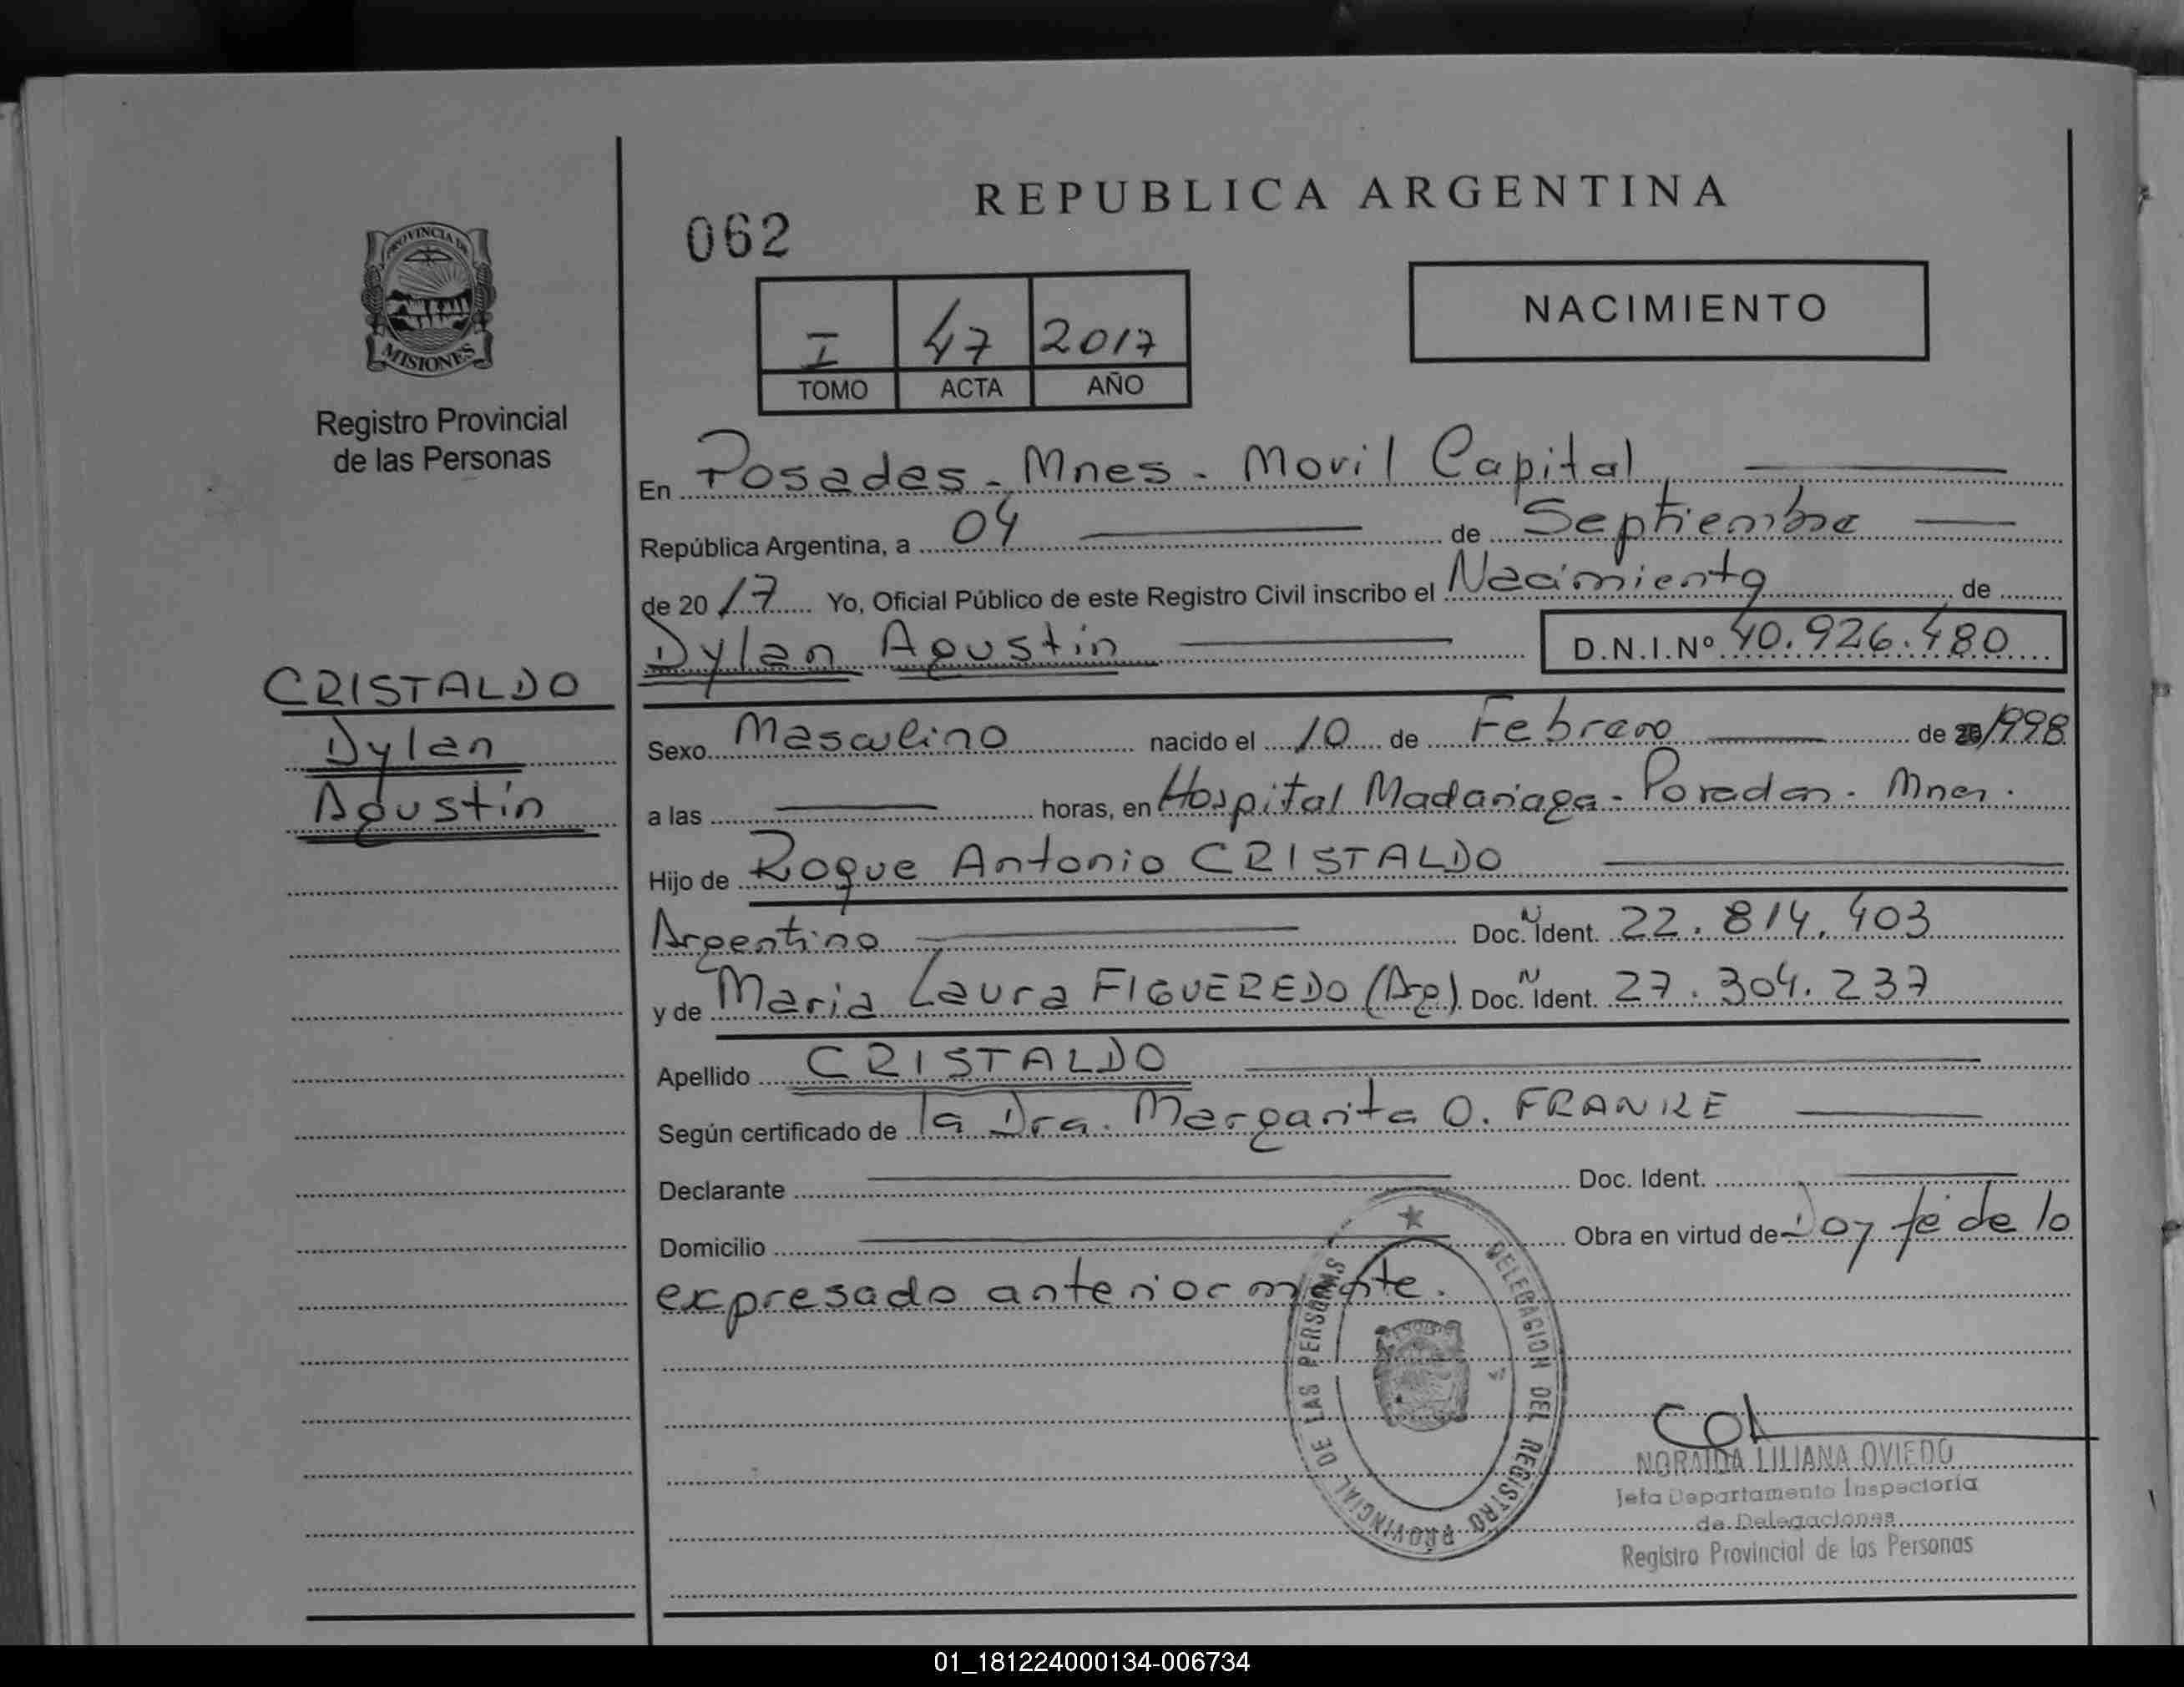 REPUBLICA ARGENTINA
062
NACIMIENTO
I 47 2017
TOMO ACTA AÑO
PROVINCIA DE
MISIONES
Registro Provincial
de las Personas
CRISTALDO
Dylan
Agustín
En Posadas - Mnes - Movil Capital
República Argentina, a 04 de Septiembre
de 2017 Yo, Oficial Público de este Registro Civil inscribo el Nacimiento de
Dylan Agustín D.N.I.Nº 40.926.480
Sexo Masculino nacido el 10 de Febrero de 1998
a las horas, en Hospital Madariaga - Posadas - Mnes.
Hijo de Roque Antonio CRISTALDO
Argentino Doc. Nº Ident. 22.814.403
y de Maria Laura FIGUEREDO (Arg) Doc. Nº Ident. 27.304.237
Apellido CRISTALDO
Según certificado de la Dra. Margarita O. FRANKE
Declarante Doc. Ident.
Domicilio Obra en virtud de Doy fé de lo
expresado anteriormente.
DELEGACION DEL REGISTRO PROVINCIAL DE LAS PERSONAS
NORAIDA LILIANA OVIEDO
Jefa Departamento Inspectoría
de Delegaciones
Registro Provincial de las Personas
01_181224000134-006734